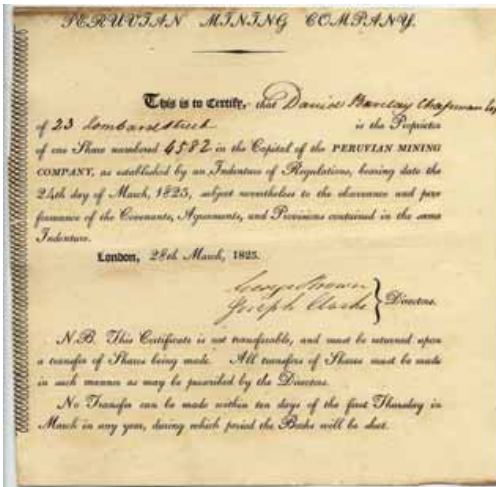 PERUVIAN MINING COMPANY.
This is to Certify, that David Barclay Chapman Esq
of 23 Lombard Street is the Proprietor
of one Share numbered 4582 in the Capital of the PERUVIAN MINING
COMPANY, as established by an Indenture of Regulations, bearing date the
24th day of March, 1825, subject nevertheless to the observance and per
formance of the Covenants, Agreements, and Provisions contained in the same
Indenture.
London, 28th March, 1825.
George Brown
Joseph Clarke
Directors.
N.B. This Certificate is not transferable, and must be returned upon
a transfer of Shares being made. All transfers of Shares must be made
in such manner as may be prescribed by the Directors.
No Transfer can be made within ten days of the first Thursday in
March in any year, during which period the Books will be shut.